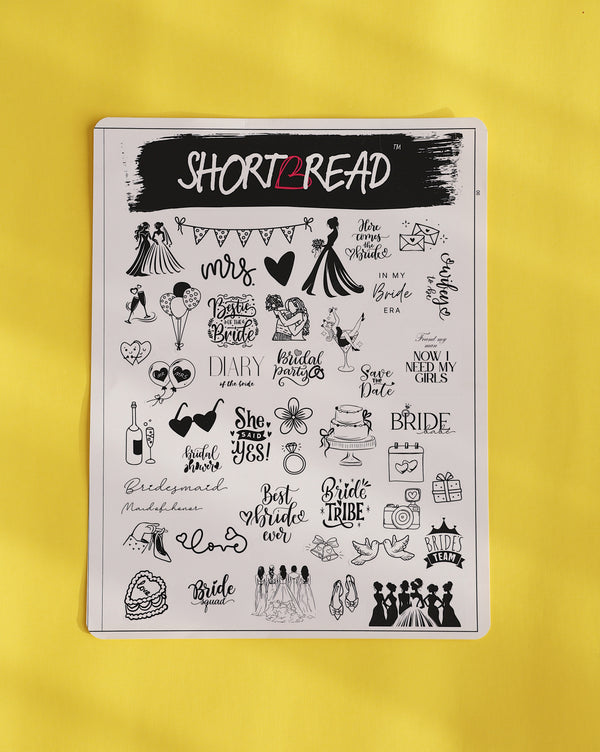 SHORTBREAD
TM
Here
comes
the
bride
wifey
to be
mrs.
IN MY
Bride
ERA
Bestie
OF THE
Bride
Found my
man
NOW I
NEED MY
GIRLS
DIARY
of the bride
Bridal
party
Save
the
Date
She
SAID
YES!
BRIDE
babe
bridal
shower
Bridesmaid
Maid of honor
Best
bride
ever
Bride
TRIBE
love
BRIDES
TEAM
Love
Bride
squad